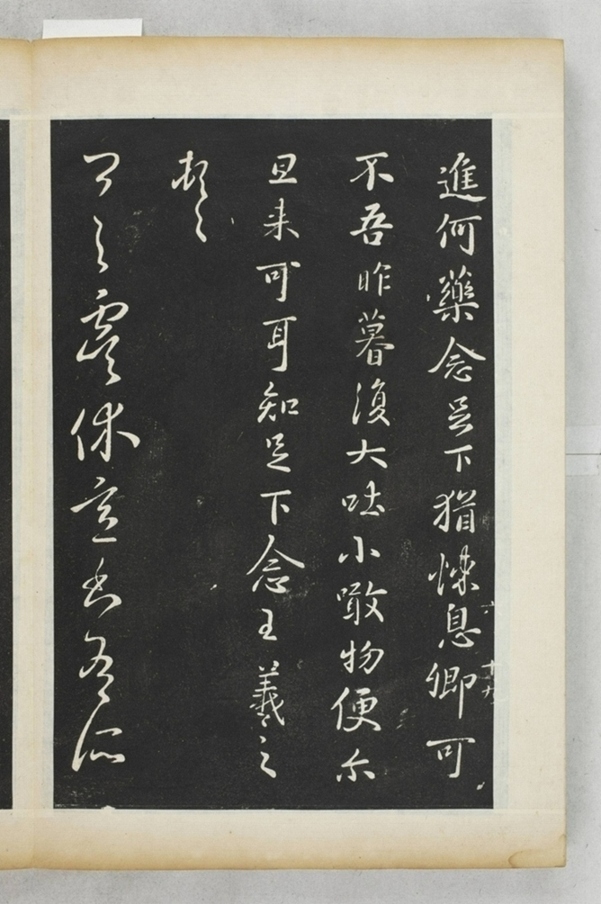 進何藥念足下猶悚息卿可
十九
不吾昨暮復大吐小噉物便尔
旦来可耳知足下念王羲之
頓首
虞休